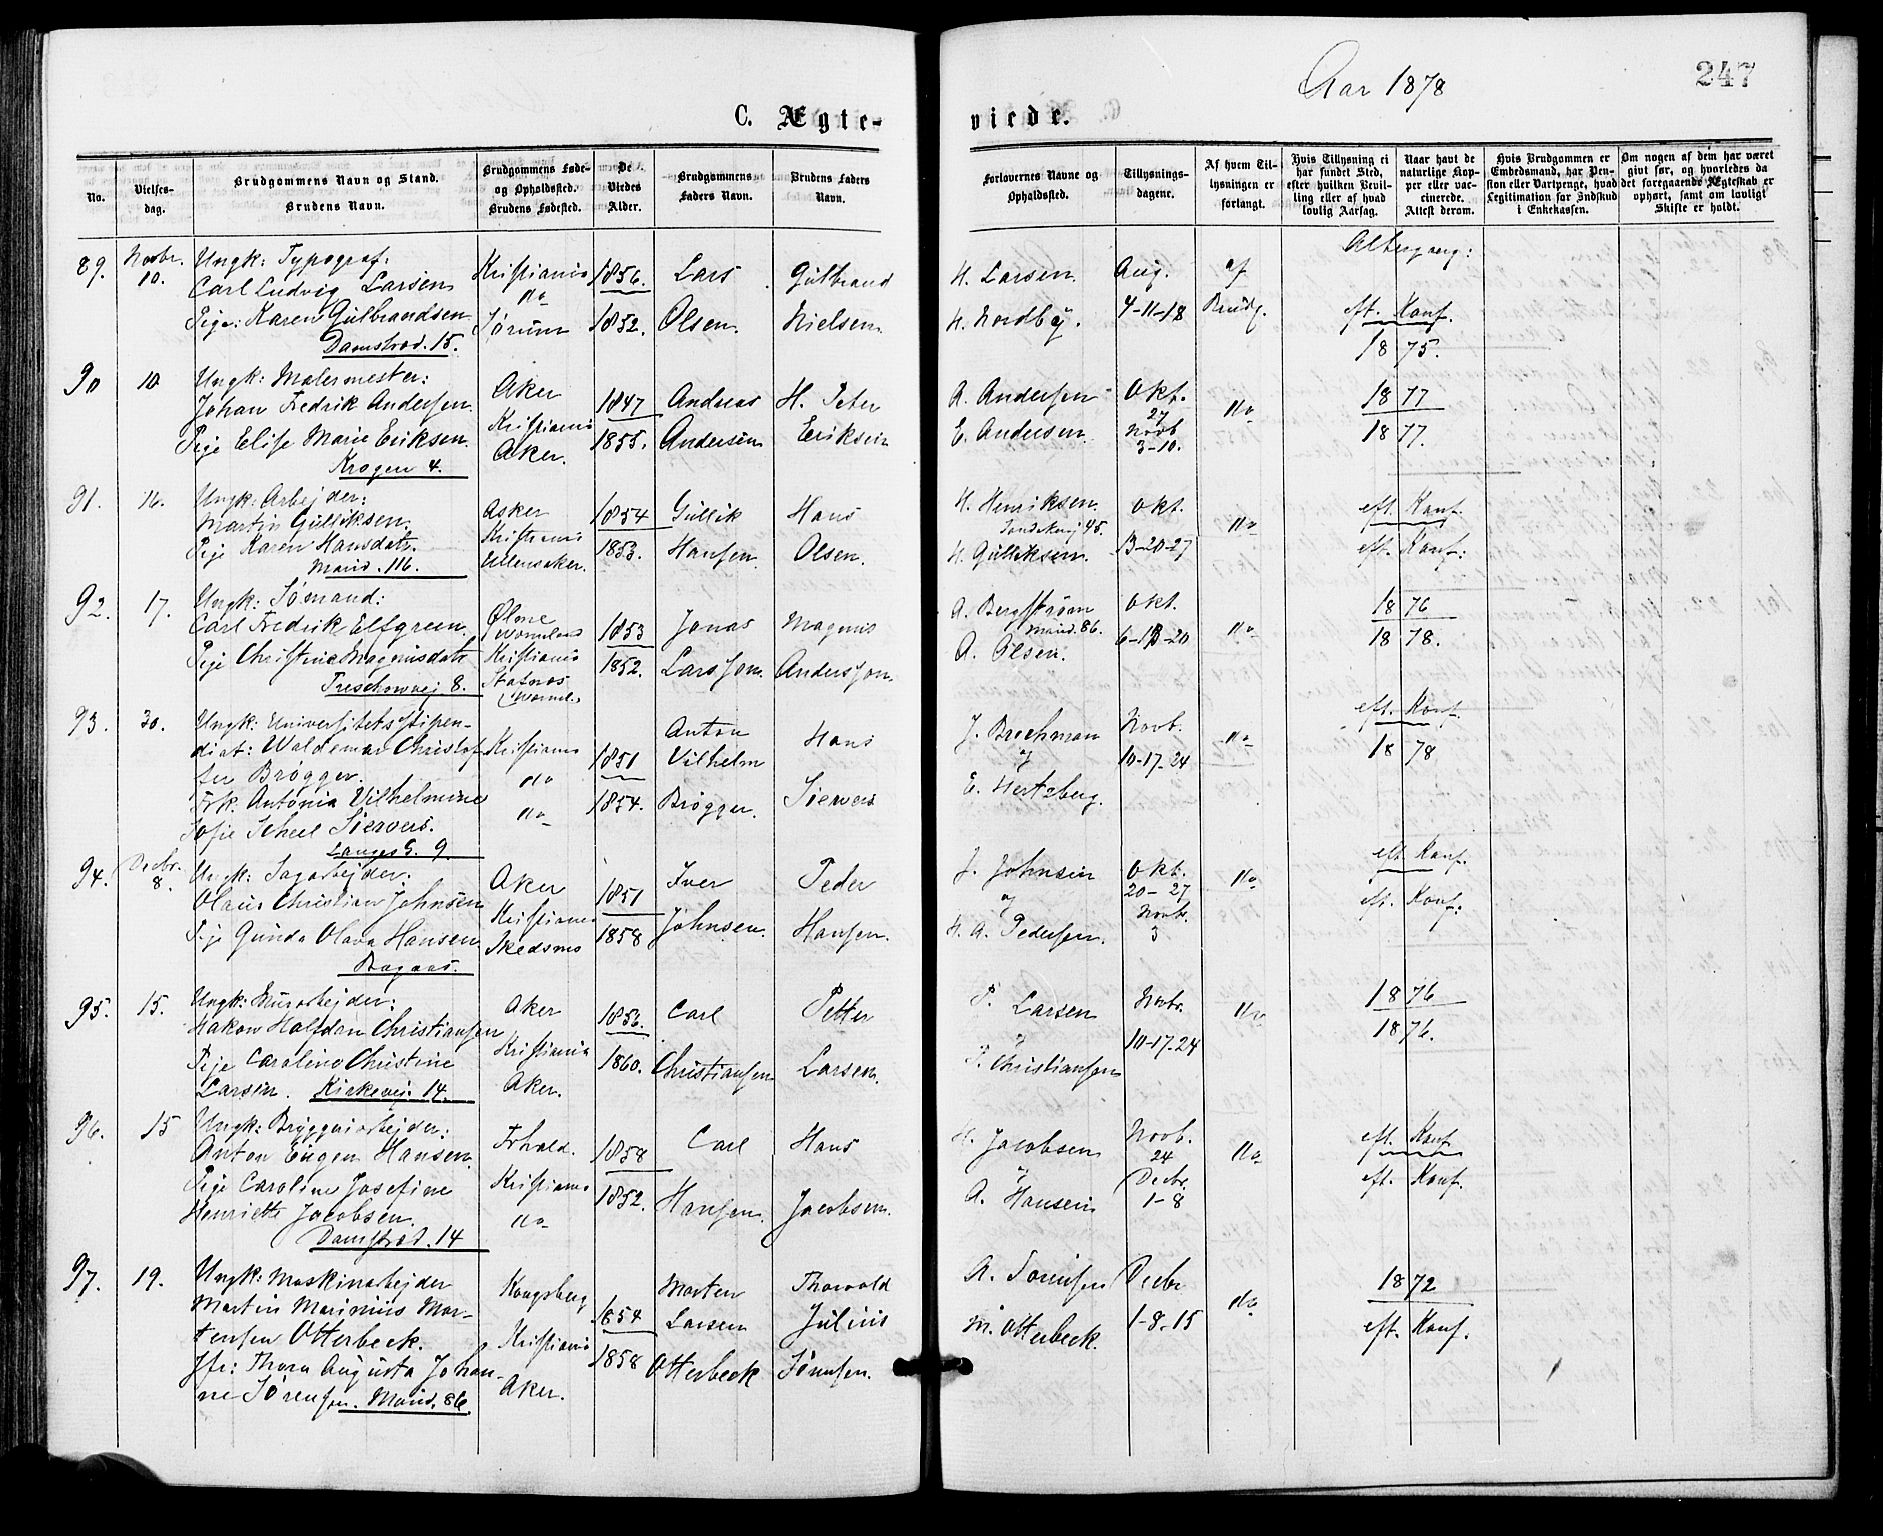 Aar 1878
247
C. Ægte-
viede.
No.
Vielses-
dag.
Brudgommens Navn og Stand.
Brudens Navn.
Brudgommens Føde-
og Opholdssted.
Brudens Fødested.
De
Viedes
Alder.
Brudgommens
Faders Navn.
Brudens Faders
Navn.
Forlovernes Navne og
Opholdssted.
Tillysnings-
dagene.
Af hvem Til-
lysningen er
forlangt.
Hvis Tillysning ei
har fundet Sted,
efter hvilken Bevil-
ling eller af hvad
lovlig Aarsag.
Naar havt de
naturlige Kop-
per eller vac-
cinerede.
Attest derom.
Hvis Brudgommen er
Embedsmand, har Pen-
sion eller Vartpenge, hvad
Legitimation for Indskud
i Enkekassen.
Om nogen af dem har været
givt før, og hvorledes da
det foregaaende Ægteskab er
ophørt, samt om lovligt
Skifte er holdt.
89. Novbr. 10.
Ungk: Typograf:
Carl Ludvig Larsen
Pige: Karen Gulbrandsen
Damstræd. 15.
Kristiania
do
Sørum
1856.
1852.
Lars
Olsen.
Gulbrand
Nielsen
H. Larsen.
H. Nordby.
Aug.
4-11-18
af
Brudg.
Altergang:
eft. Konf.
1875.
90 10
Ungk: Malermester:
Johan Fredrik Andersen
Pige Elise Marie Eriksen.
Krogen 4.
Aker
Kristiania
Aker.
1847
1855.
Andreas
Andersen
H. Peter
Eriksen
A. Andersen
E. Andersen.
Okt.
27
Novb.
3-10.
do
1877
1877.
91. 16.
Ungk: Arbejder:
Martin Gulliksen.
Pige Karen Hansdatr.
Marid. 116.
Asker
Kristiania
Ullensaker.
1854
1853.
Gullik
Hansen.
Hans
Olsen.
H. Henriksen.
45.
H. Gulliksen.
Okt.
13-20-27
do
eft. Konf.
eft. Konf:
92. 17.
Ungk: Sømand:
Carl Fredrik Elfgreen.
Pige Christine Magnusdatr
Treschowvej 8.
Ølme
Kristiania
1853
1852.
Jonas
Larsson.
Magnus
Andersson.
A. Bergstrøm
Marid. 86.
A. Olsen.
Okt.
6-13-20
do
1876
1878.
93. 30.
Ungk: Universitetsstipen-
diat: Waldemar Christof-
fer Brøgger.
Frk. Antonia Vilhelmine
Sofie Scheel Siewers.
Langes G. 9
Kristiania
do
do
1851
1854.
Anton
Vilhelm
Brøgger.
Hans
Siewers
J. Brochman
og
E. Hertzberg.
Novb.
10-17-24
do
eft. Konf.
1878
94. Decbr. 8.
Ungk: Sagarbejder:
Olaus Christian Johnsen
Pige Gunda Olava Hansen
Aker
Kristiania
Skedsmo
1851
1858
Iver
Johnsen.
Peder
Hansen.
J. Johnsen
og
H. A. Pedersen.
Okt.
20-27
Novbr.
3
do
eft. Konf.
eft. Konf:
95. 15.
Ungk: Murarbejder:
Hakon Halfdan Christiansen
Pige Caroline Christine
Larsen. Kirkevej. 14.
Aker
Kristiania
Aker.
1856.
1860.
Carl
Christiansen
Petter
Larsen.
P. Larsen
og
Christiansen
Novbr.
10-17-24
do
1876
1876.
96. 15
Ungk: Bryggeriarbejder:
Anton Eugen Hansen.
Pige Caroline Josefine
Henriette Jacobsen.
Damstræd. 14
Frhald.
Kristiania
do
1858
1852.
Carl
Hansen.
Hans
Jacobsen.
H. Jacobsen
og
A. Hansen
Novb.
24
Decbr.
1-8
do
eft. Konf.
eft. Konf.
97. 19.
Ungk: Maskinarbejder
Martin Marinius Mor-
tensen Otterbeck.
Jfr: Thora Augusta Johan-
ne Sørensen. Marid. 86.
Kongsberg
Kristiania
Aker.
1854
1858
Morten
Larsen
Otterbeck
Thorvald
Julius
Sørensen.
A. Sørensen
M. Otterbeck.
Decbr
1-8-15
do
1872
eft. Konf.